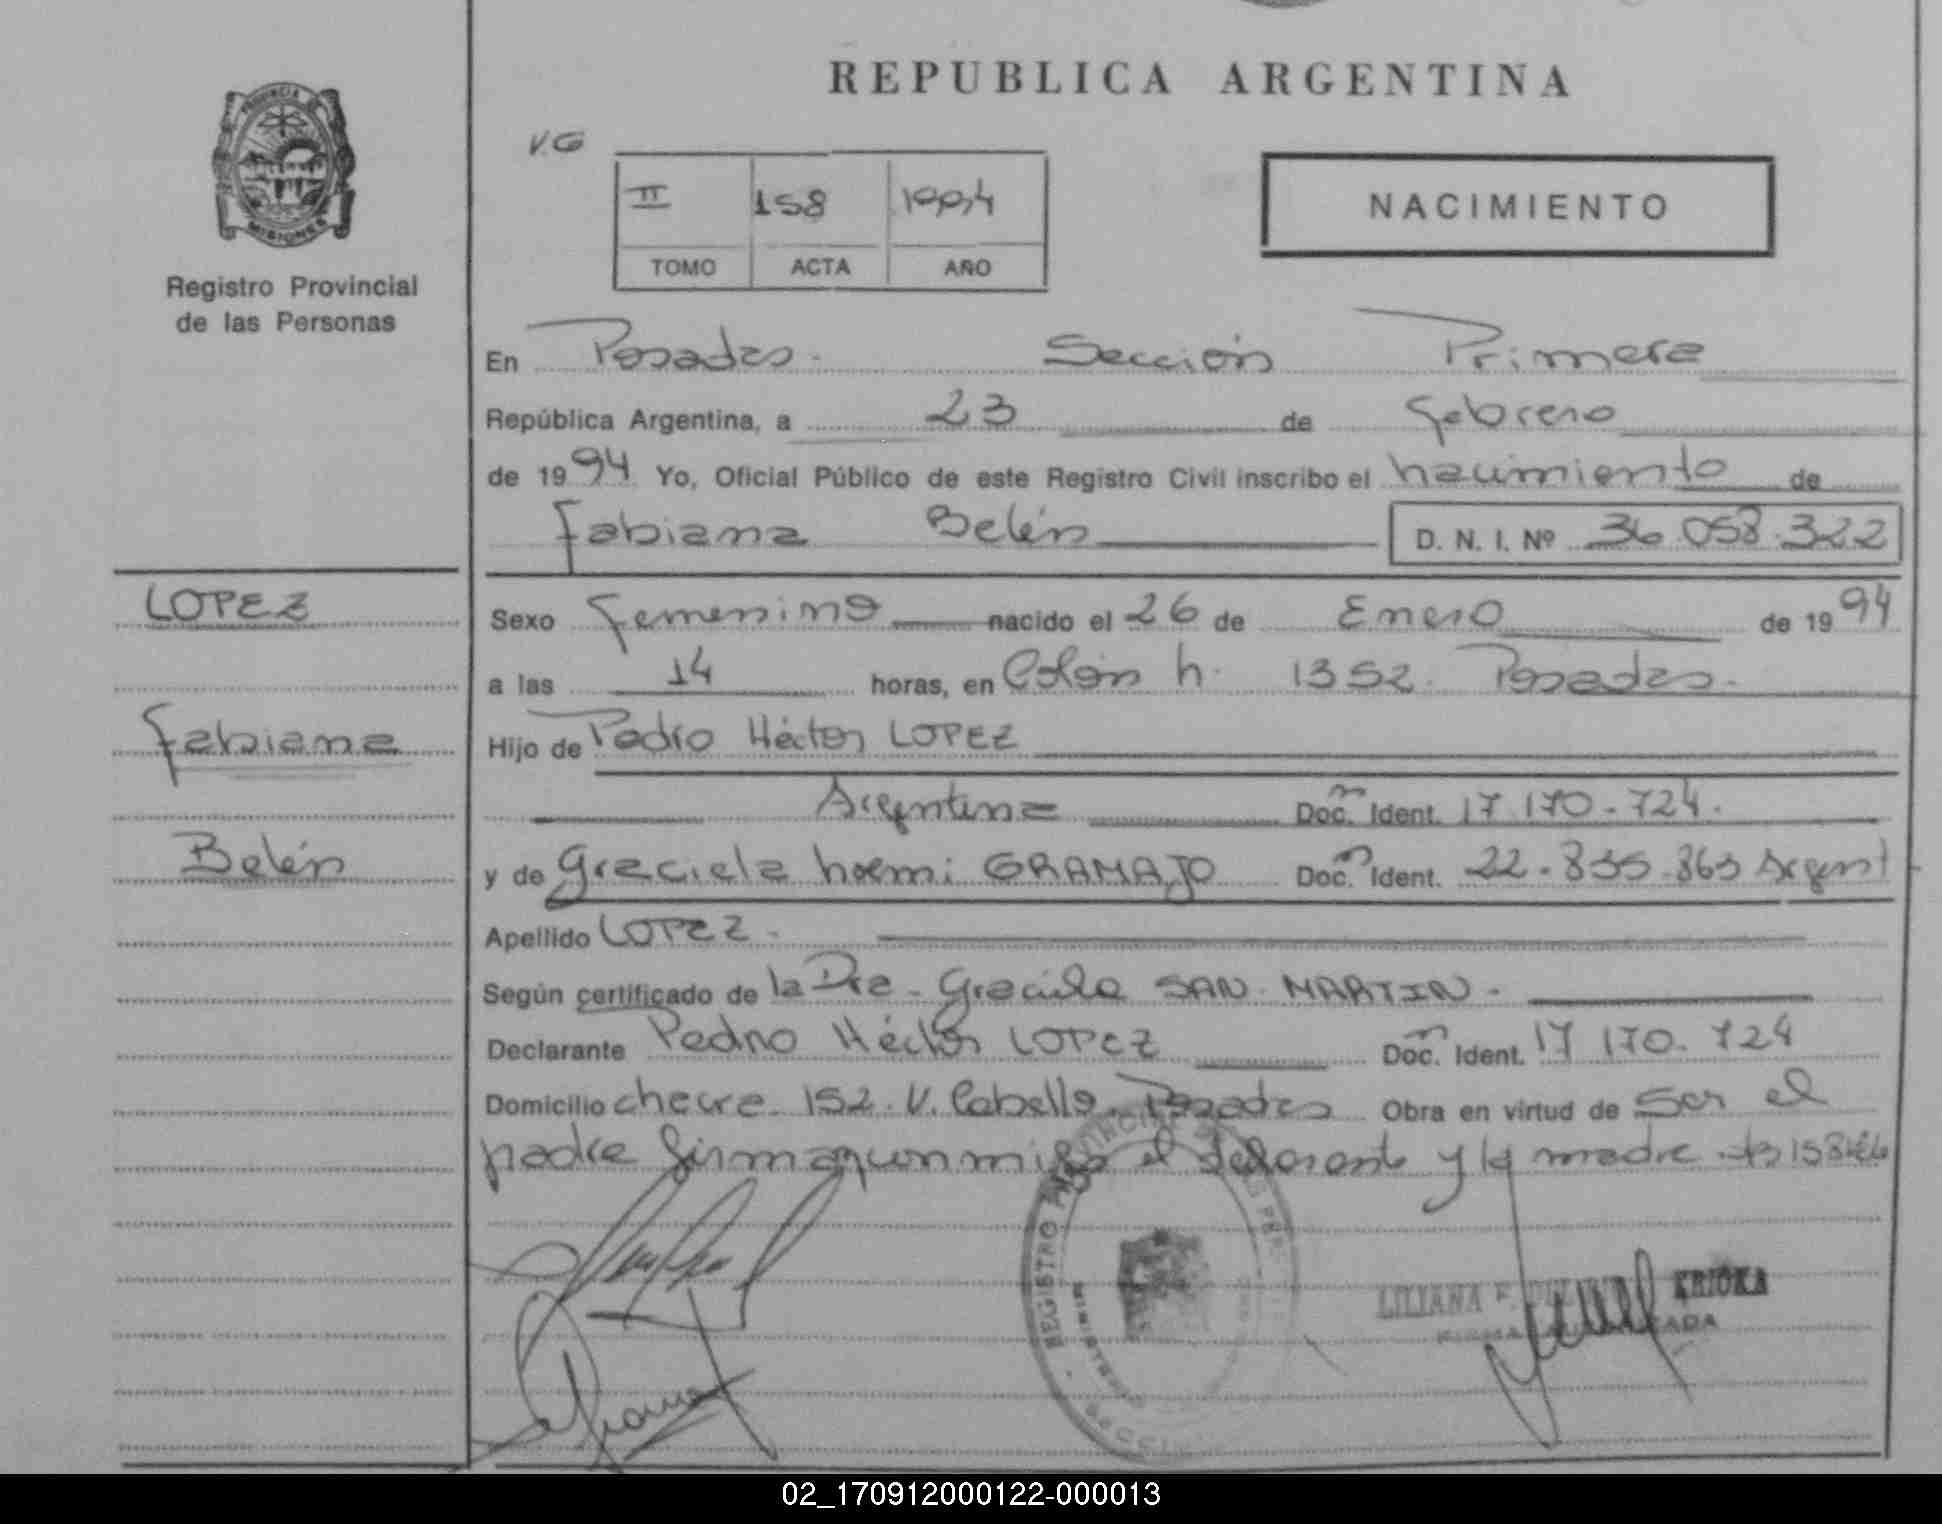 REPUBLICA ARGENTINA
PROVINCIA DE
MISIONES
Registro Provincial
de las Personas
V.G
II 158 1994
TOMO ACTA AÑO
NACIMIENTO
En Posadas. Sección Primera
República Argentina, a 23 de febrero
de 1994 Yo, Oficial Público de este Registro Civil inscribo el nacimiento de
Fabiana Belén D. N. I. Nº 36.058.322
LOPEZ
Fabiana
Belén
Sexo femenino nacido el 26 de Enero de 1994
a las 14 horas, en Colón h. 1352. Posadas.
Hijo de Pedro Héctor LOPEZ
Argentina Doc. Ident. 17.170.724.
y de Graciela Noemi GRAMAJO Doc. Ident. 22.835.863 Argent
Apellido LOPEZ.
Según certificado de la Dra. Graciela SAN MARTIN.
Declarante Pedro Héctor LOPEZ Doc. Ident. 17 170.724
Domicilio 152. V. Cabello. Posadas Obra en virtud de Ser el
padre firman conmigo el y la madre
REGISTRO
LILIANA F. KRICKA
02_170912000122-000013